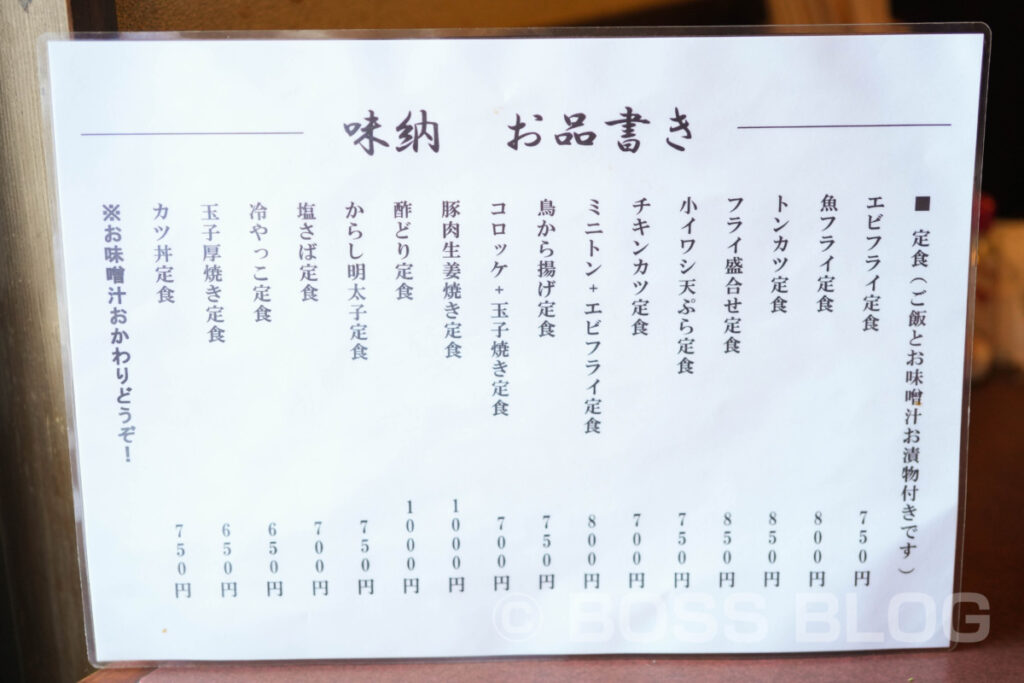 味納 お品書き
■ 定食（ご飯とお味噌汁お漬物付きです）
エビフライ定食 750円
魚フライ定食 800円
トンカツ定食 850円
フライ盛合せ定食 850円
小イワシ天ぷら定食 750円
チキンカツ定食 700円
ミニトン+エビフライ定食 800円
鳥から揚げ定食 750円
コロッケ+玉子焼き定食 700円
豚肉生姜焼き定食 1000円
酢どり定食 1000円
からし明太子定食 750円
塩さば定食 700円
冷やっこ定食 650円
玉子厚焼き定食 650円
カツ丼定食 750円
※お味噌汁おかわりどうぞ！
© BOSS BLOG